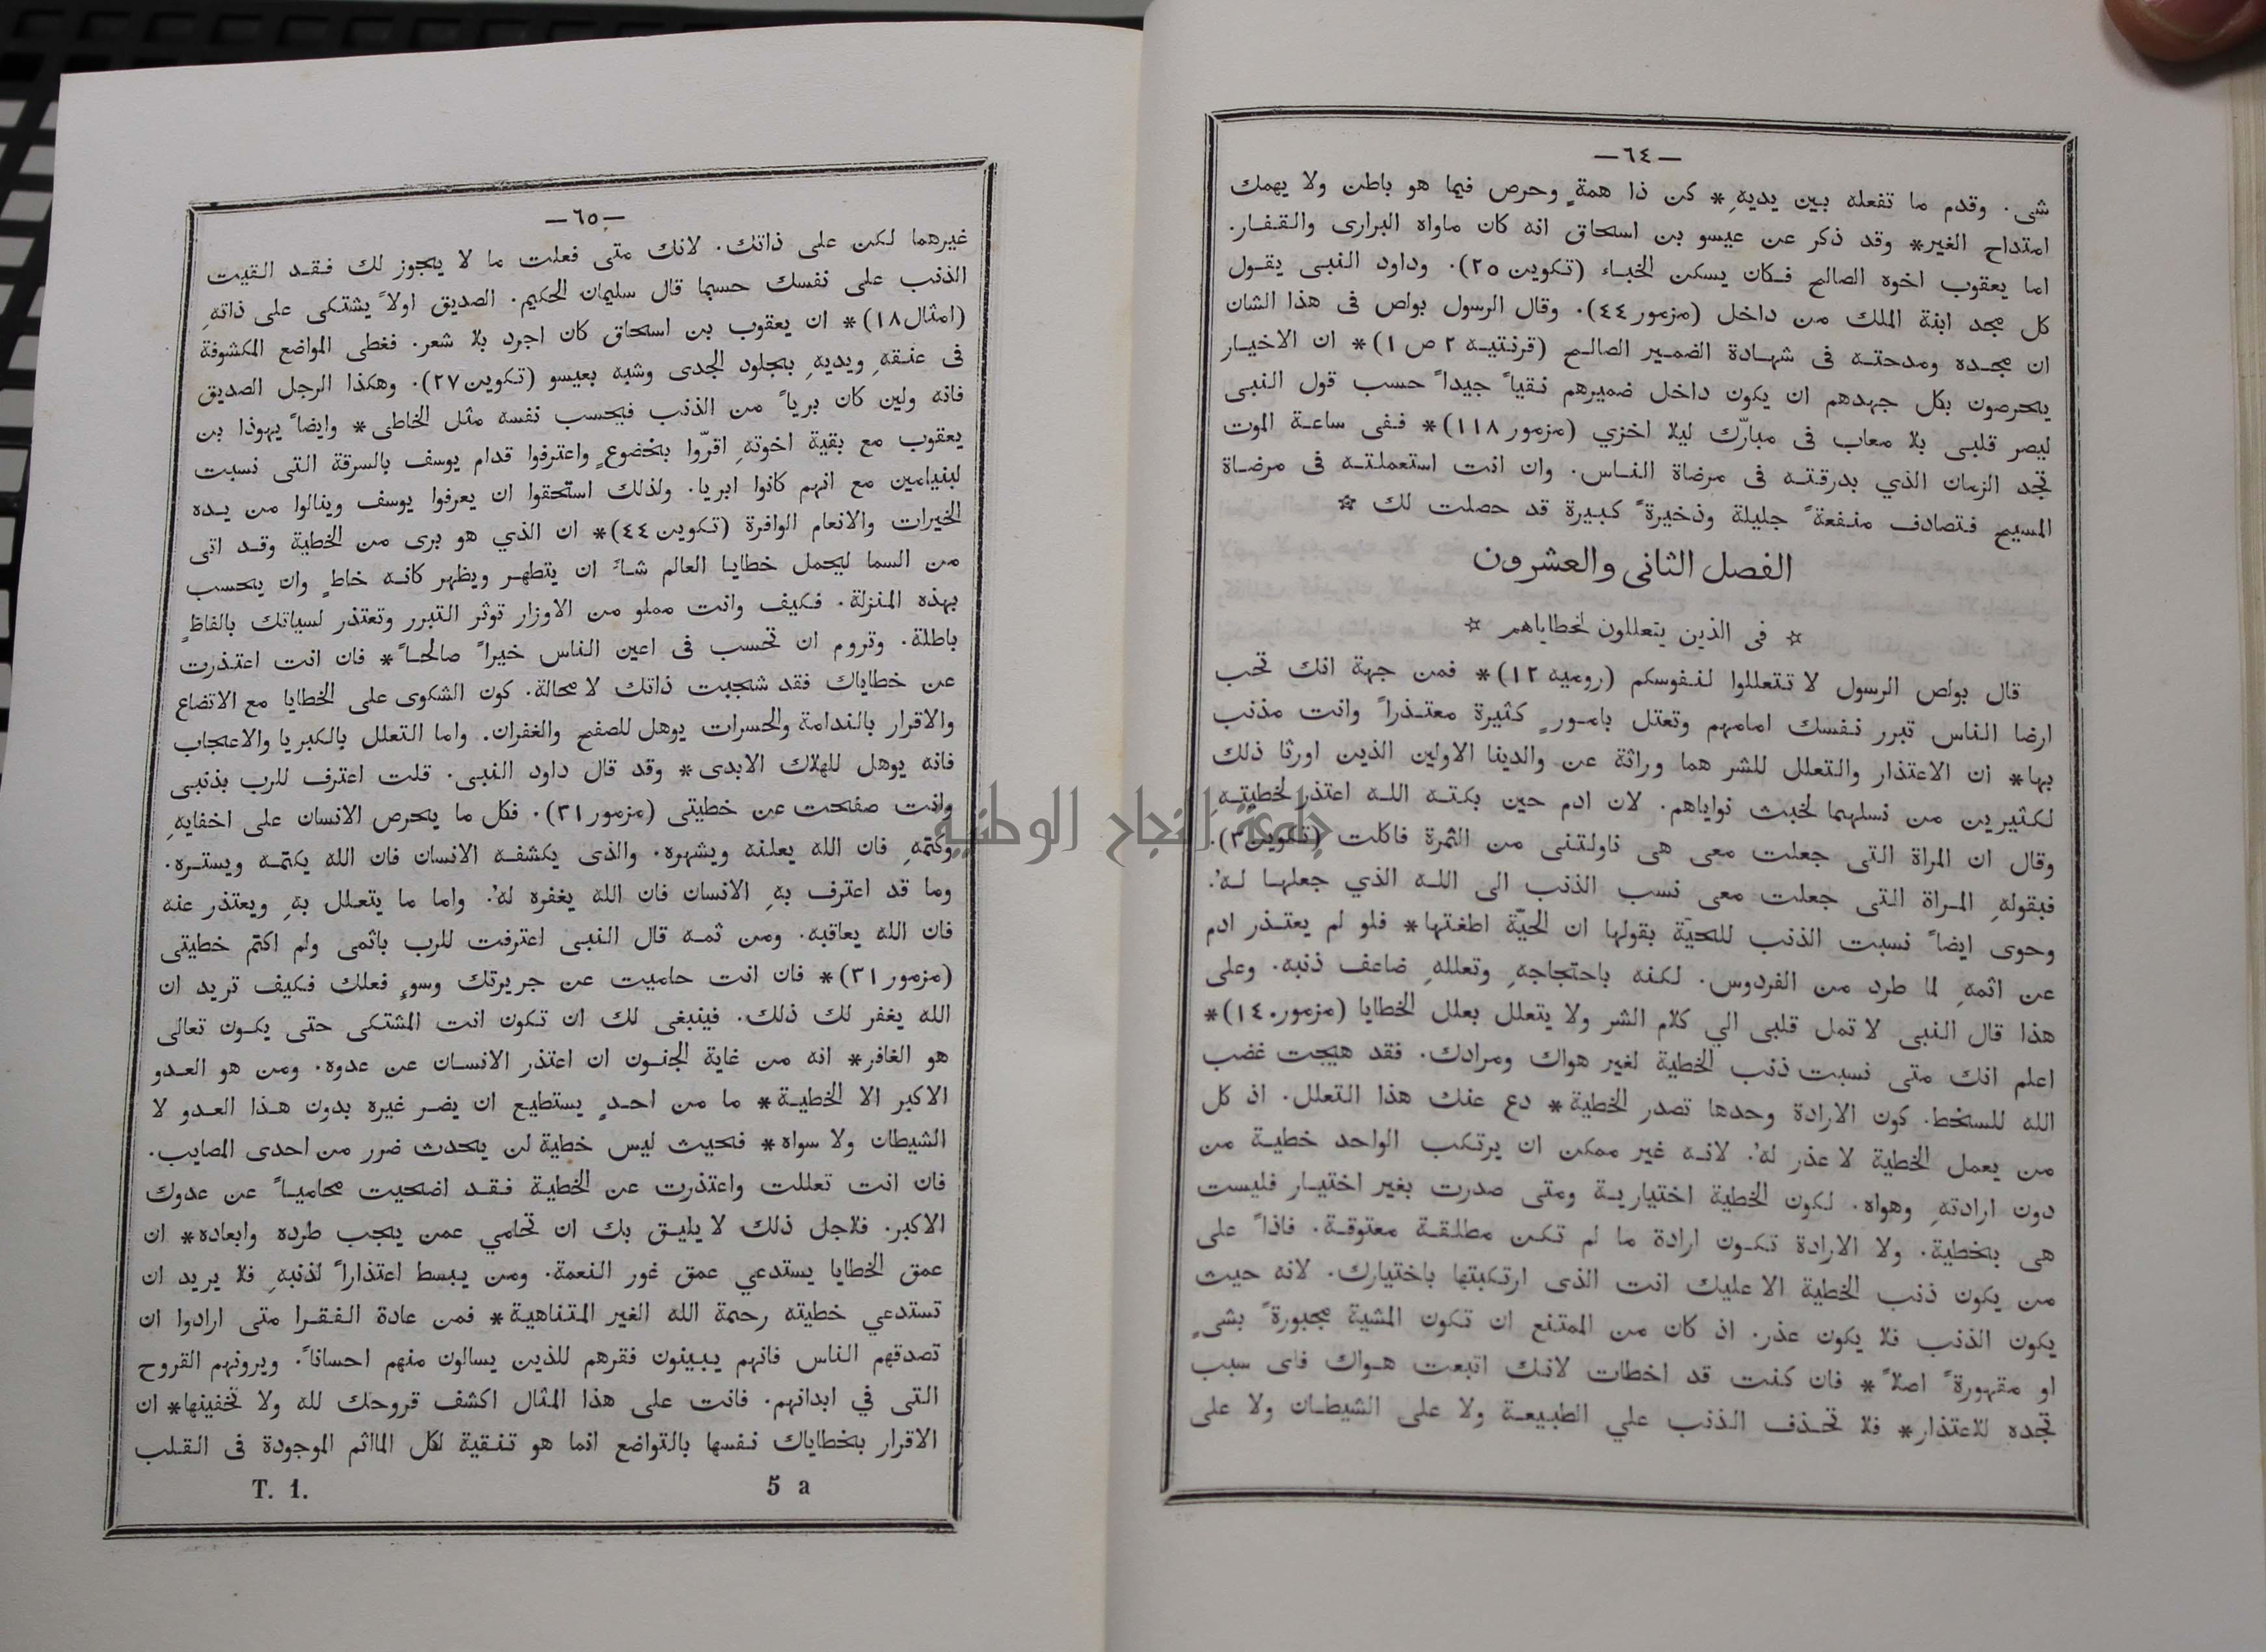 —٦٤—
شى. وقدم ما تفعله بين يديهِ * كن ذا همةٍ وحرص فيما هو باطن ولا يهمك
امتداح الغير* وقد ذكر عن عيسو بن اسحاق انه كان ماواه البرارى والقفار.
اما يعقوب اخوه الصالح فكان يسكن الخباء (تكوين ٢٥). وداود النبى يقول
كل مجد ابنة الملك من داخل (مزمور ٤٤). وقال الرسول بولص فى هذا الشان
ان مجده ومدحته فى شهادة الضمير الصالح (قرنتيه ٢ ص ١)* ان الاخيار
يحرصون بكل جهدهم ان يكون داخل ضميرهم نقياً جيداً حسب قول النبى
ليصر قلبى بلا معاب فى مبارّك ليلا اخزي (مزمور ١١٨)* ففى ساعة الموت
تجد الزمان الذي بدرقته فى مرضاة الناس. وان انت استعملته فى مرضاة
المسيح فتصادف منفعةً جليلة وذخيرةً كبيرة قد حصلت لك ☆
الفصل الثانى والعشرون
☆ فى الذين يتعللون لخطاياهم ☆
قال بولص الرسول لا تتعللوا لنفوسكم (روميه ١٢)* فمن جهة انك تحب
ارضا الناس تبرر نفسك امامهم وتعتل بامورٍ كثيرة معتذراً وانت مذنب
بها* ان الاعتذار والتعلل للشر هما وراثة عن والدينا الاولين الذين اورثا ذلك
لكثيرين من نسلهما لخبث نواياهم. لان ادم حين بكته الله اعتذر لخطيتهِ
وقال ان المراة التى جعلت معى هى ناولتنى من الثمرة فاكلت (تكوين ٣).
فبقولهِ المراة التى جعلت معى نسب الذنب الى الله الذي جعلها لهُ.
وحوى ايضاً نسبت الذنب للحيّة بقولها ان الحيّة اطغتها* فلو لم يعتذر ادم
عن اثمهِ لما طرد من الفردوس. لكنه باحتجاجهِ وتعللهِ ضاعف ذنبه. وعلى
هذا قال النبى لا تمل قلبى الي كلام الشر ولا يتعلل بعلل الخطايا (مزمور ١٤٠)*
اعلم انك متى نسبت ذنب الخطية لغير هواك ومرادك. فقد هيجت غضب
الله للسخط. كون الارادة وحدها تصدر الخطية* دع عنك هذا التعلل. اذ كل
من يعمل الخطية لا عذر لهُ. لانه غير ممكن ان يرتكب الواحد خطية من
دون ارادتهِ وهواه. لكون الخطية اختيارية ومتى صدرت بغير اختيار فليست
هى بخطية. ولا الارادة تكون ارادة ما لم تكن مطلقة معتوقة. فاذاً على
من يكون ذنب الخطية الا عليك انت الذى ارتكبتها باختيارك. لانه حيث
يكون الذنب فلا يكون عذر. اذ كان من الممتنع ان تكون المشية مجبورةً بشىٍ
او مقهورةً اصلاً* فان كنت قد اخطات لانك اتبعت هواك فاى سبب
تجده للاعتذار* فلا تحذف الذنب علي الطبيعة ولا على الشيطان ولا على
—٦٥—
غيرهما لكن على ذاتك. لانك متى فعلت ما لا يجوز لك فقد القيت
الذنب على نفسك حسبما قال سليمان الحكيم. الصديق اولاً يشتكى على ذاتهِ
(امثال ١٨)* ان يعقوب بن اسحاق كان اجرد بلا شعر. فغطى المواضع المكشوفة
فى عنقهِ ويديهِ بجلود الجدى وشبه بعيسو (تكوين ٢٧). وهكذا الرجل الصديق
فانه ولين كان برياً من الذنب فيحسب نفسه مثل الخاطى* وايضاً يهوذا بن
يعقوب مع بقية اخوتهِ اقرّوا بخضوعٍ واعترفوا قدام يوسف بالسرقة التى نسبت
لبنيامين مع انهم كانوا ابريا. ولذلك استحقوا ان يعرفوا يوسف وينالوا من يده
الخيرات والانعام الوافرة (تكوين ٤٤)* ان الذي هو برى من الخطية وقد اتى
من السما ليحمل خطايا العالم شاء ان يتطهر ويظهر كانه خاطٍ وان يحسب
بهذه المنزلة. فكيف وانت مملو من الاوزار توثر التبرر وتعتذر لسياتك بالفاظٍ
باطلة. وتروم ان تحسب فى اعين الناس خيراً صالحاً* فان انت اعتذرت
عن خطاياك فقد شجبت ذاتك لا محالة. كون الشكوى على الخطايا مع الاتضاع
والاقرار بالندامة والحسرات يوهل للصفح والغفران. واما التعلل بالكبريا والاعجاب
فانه يوهل للهلاك الابدى* وقد قال داود النبى. قلت اعترف للرب بذنبى
وانت صفحت عن خطيتى (مزمور ٣١). فكل ما يحرص الانسان على اخفايهِ
وكتمهِ فان الله يعلنه ويشهره. والذى يكشفه الانسان فان الله يكتمه ويستره.
وما قد اعترف بهِ الانسان فان الله يغفره لهُ. واما ما يتعلل بهِ ويعتذر عنه
فان الله يعاقبه. ومن ثمه قال النبى اعترفت للرب باثمى ولم اكتم خطيتى
(مزمور ٣١)* فان انت حاميت عن جريرتك وسوءِ فعلك فكيف تريد ان
الله يغفر لك ذلك. فينبغى لك ان تكون انت المشتكى حتى يكون تعالى
هو الغافر* انه من غاية الجنون ان اعتذر الانسان عن عدوه. ومن هو العدو
الاكبر الا الخطية* ما من احدٍ يستطيع ان يضر غيره بدون هذا العدو لا
الشيطان ولا سواه* فحيث ليس خطية لن يحدث ضرر من احدى المصايب.
فان انت تعللت واعتذرت عن الخطية فقد اضحيت محامياً عن عدوك
الاكبر. فلاجل ذلك لا يليق بك ان تحامي عمن يجب طرده وابعاده* ان
عمق الخطايا يستدعي عمق غور النعمة. ومن يبسط اعتذاراً لذنبهِ فلا يريد ان
تستدعي خطيته رحمة الله الغير المتناهية* فمن عادة الفقرا متى ارادوا ان
تصدقهم الناس فانهم يبينون فقرهم للذين يسالون منهم احساناً. ويرونهم القروح
التى في ابدانهم. فانت على هذا المثال اكشف قروحك لله ولا تخفينها* ان
الاقرار بخطاياك نفسها بالتواضع انما هو تنقية لكل المااثم الموجودة فى القلب
T. 1. 5 a
جامعة النجاح الوطنية